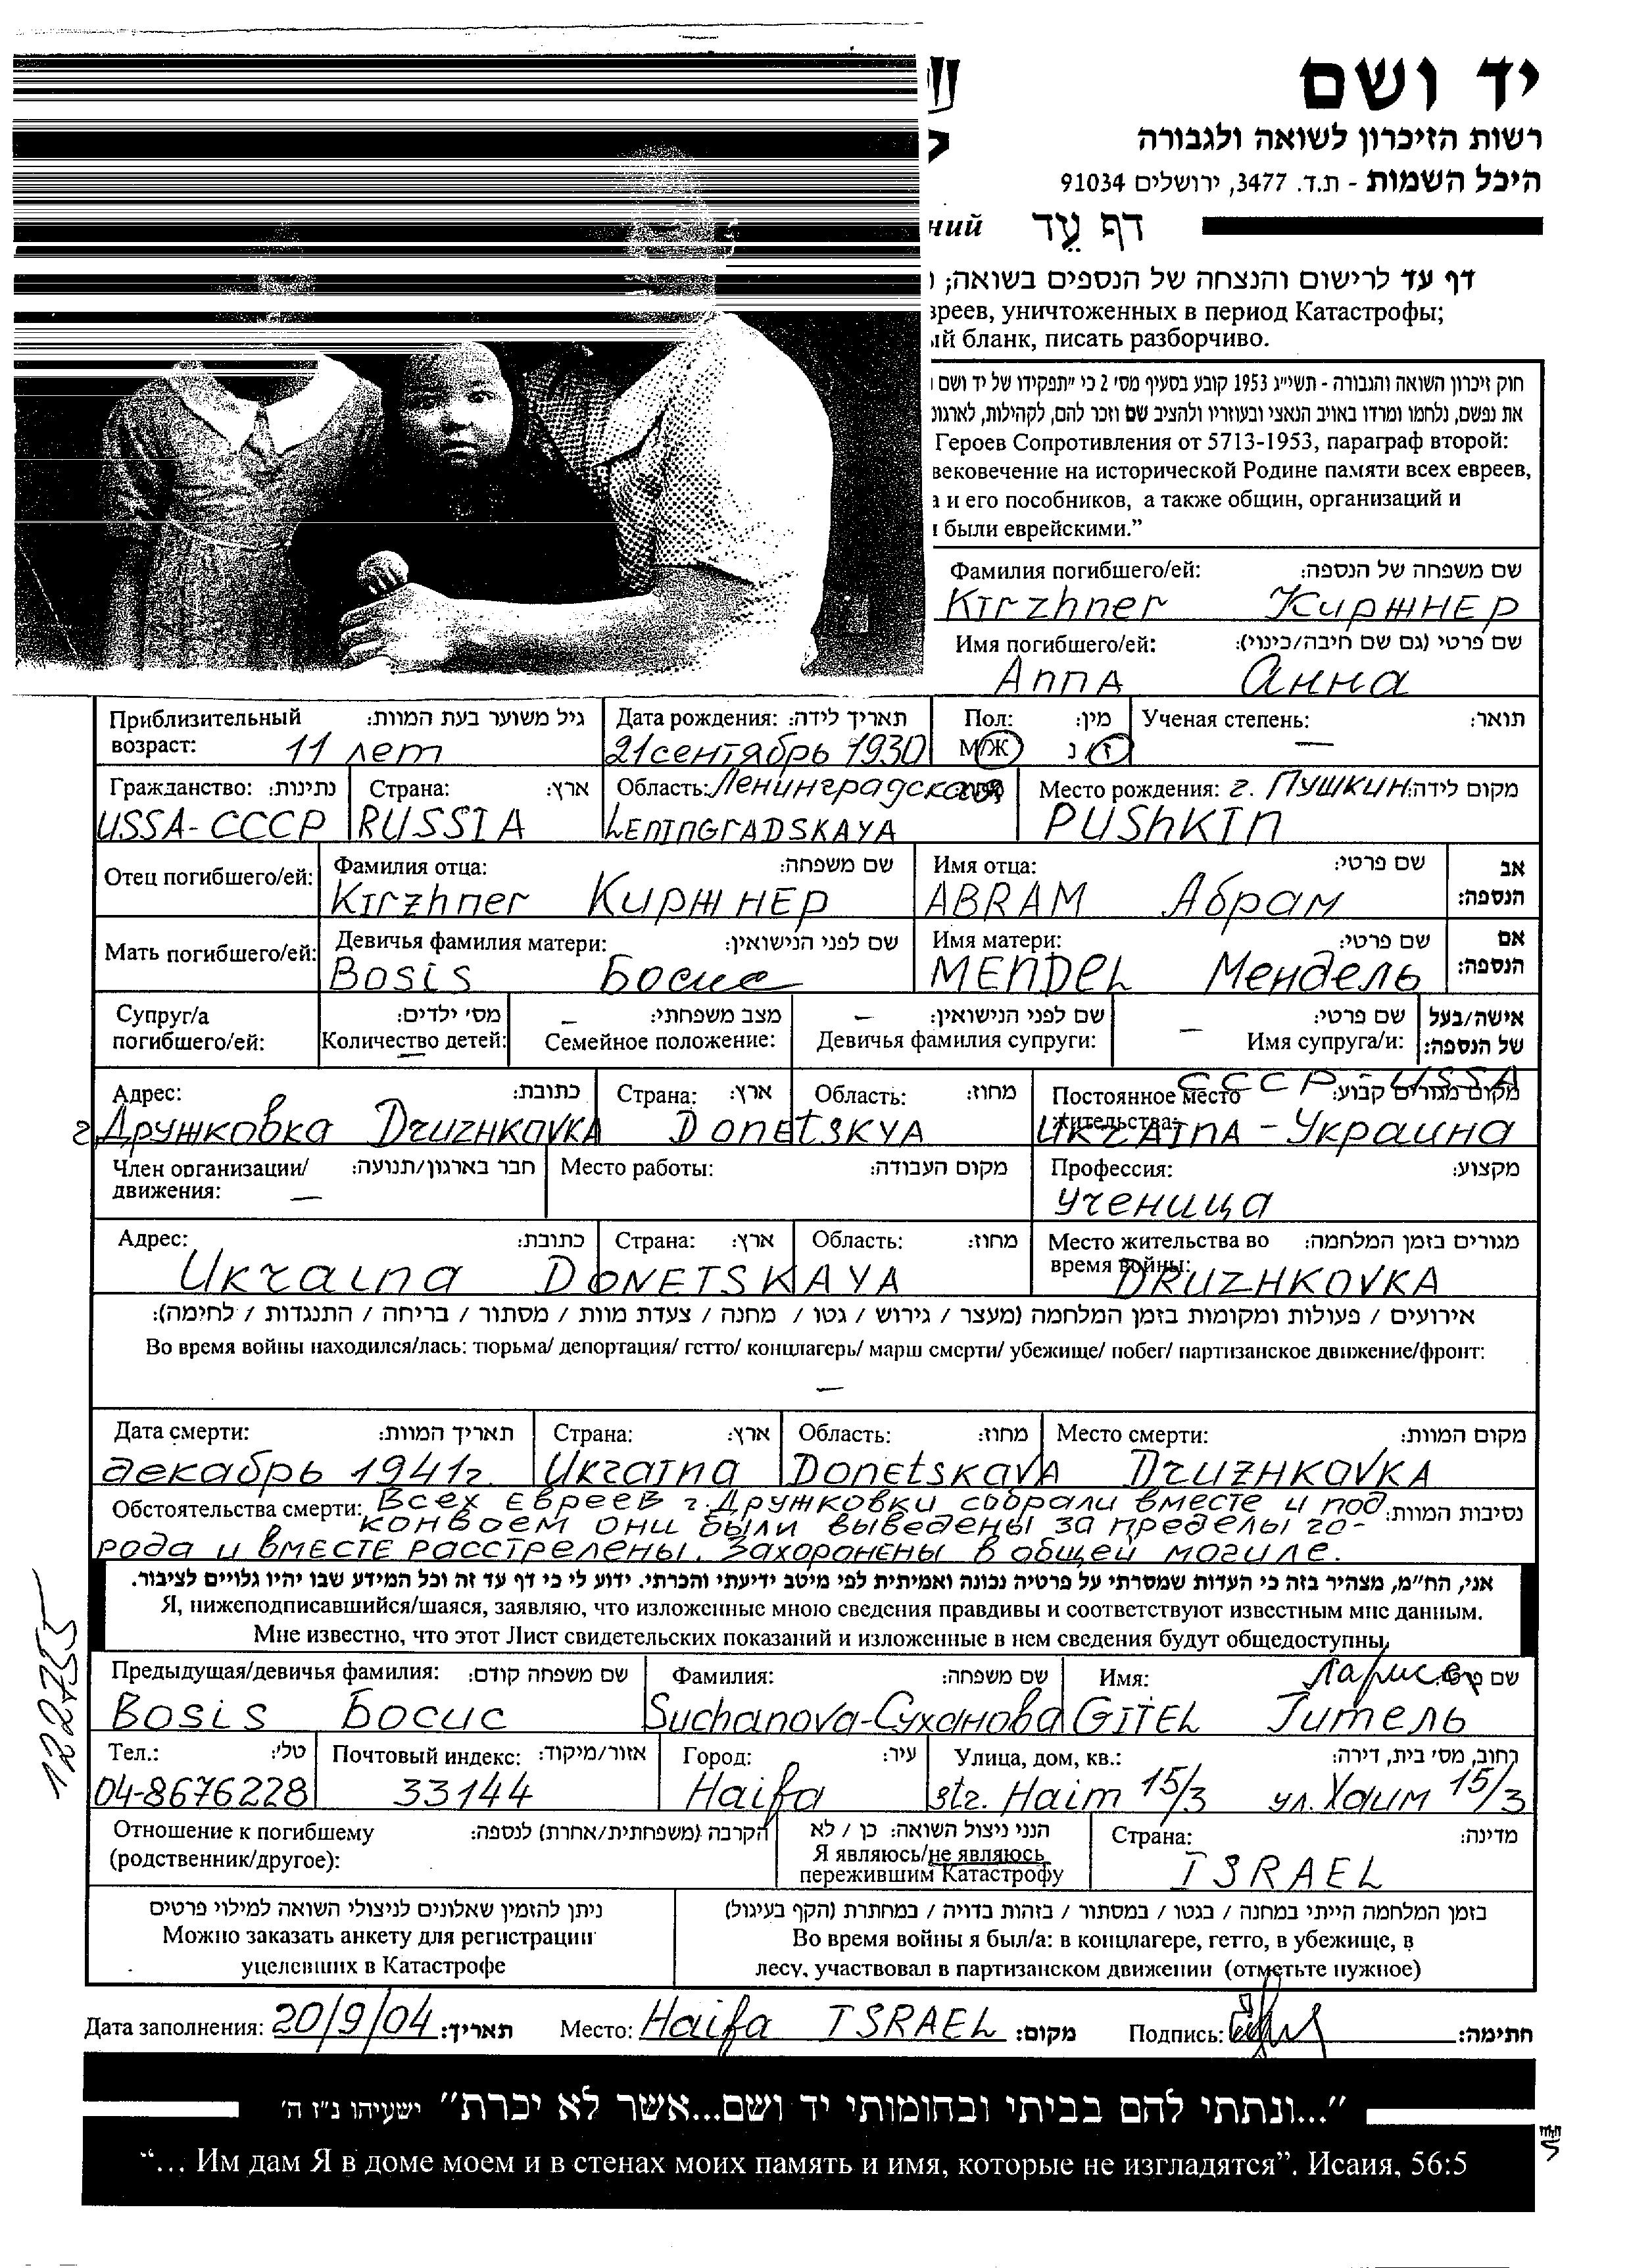 יד ושם
רשות הזיכרון לשואה ולגבורה
היכל השמות - ת.ד. 3477, ירושלים 91034
ний דף עֵד
דף עד לרישום והנצחה של הנספים בשואה;
вреев, уничтоженных в период Катастрофы;
ый бланк, писать разборчиво.
חוק זיכרון השואה והגבורה - תשי״ג 1953 קובע בסעיף מס׳ 2 כי ״תפקידו של יד ושם
את נפשם, נלחמו ומרדו באויב הנאצי ובעוזריו ולהציב שם וזכר להם, לקהילות, לארגונ
Героев Сопротивления от 5713-1953, параграф второй:
вековечение на исторической Родине памяти всех евреев,
а и его пособников, а также общин, организаций и
и были еврейскими.”
Фамилия погибшего/ей: שם משפחה של הנספה:
Kirzhner Киржнер
Имя погибшего/ей: שם פרטי (גם שם חיבה/כינוי):
Anna Анна
Приблизительный возраст: גיל משוער בעת המוות: Дата рождения: תאריך לידה: Пол: מין: Ученая степень: תואר:
11 лет 21 сентябрь 1930 М/Ж ז / נ —
Гражданство: נתינות: Страна: ארץ: Область: Ленинградская Место рождения: г. Пушкин מקום לידה:
USSA-СССР RUSSIA LENINGRADSKAYA PUShKIN
Отец погибшего/ей: Фамилия отца: שם משפחה: Имя отца: שם פרטי: אב הנספה:
Kirzhner Киржнер ABRAM Абрам
Мать погибшего/ей: Девичья фамилия матери: שם לפני הנישואין: Имя матери: שם פרטי: אם הנספה:
Bosis Босис MENDEL Мендель
Супруг/а מס׳ ילדים: מצב משפחתי: — שם לפני הנישואין: — שם פרטי: אישה/בעל
погибшего/ей: Количество детей: — Семейное положение: Девичья фамилия супруги: Имя супруга/и: — של הנספה:
Адрес: כתובת: Страна: ארץ: Область: מחוז: Постоянное место жительства: מקום מגורים קבוע: СССР-USSA
г. Дружковка Druzhkovka DonetskYA Ukraina - Украина
Член организации/ движения: — חבר בארגון/תנועה: Место работы: מקום העבודה: Профессия: מקצוע:
ученица
Адрес: כתובת: Страна: ארץ: Область: מחוז: Место жительства во время войны: מגורים בזמן המלחמה:
Ukraina DONETSKAYA DRUZHKOVKA
אירועים / פעולות ומקומות בזמן המלחמה (מעצר / גירוש / גטו / מחנה / צעדת מוות / מסתור / בריחה / התנגדות / לחימה):
Во время войны находился/лась: тюрьма/ депортация/ гетто/ концлагерь/ марш смерти/ убежище/ побег/ партизанское движение/фронт:
—
Дата смерти: תאריך המוות: Страна: ארץ: Область: מחוז: Место смерти: מקום המוות:
декабрь 1941г. Ukraina Donetskaya Druzhkovka
Обстоятельства смерти: Всех евреев г. Дружковки собрали вместе и под נסיבות המוות:
конвоем они были выведены за пределы го-
рода и вместе расстрелены. Захоронены в общей могиле.
אני, הח״מ, מצהיר בזה כי העדות שמסרתי על פרטיה נכונה ואמיתית לפי מיטב ידיעתי והכרתי. ידוע לי כי דף עד זה וכל המידע שבו יהיו גלויים לציבור.
Я, нижеподписавшийся/шаяся, заявляю, что изложенные мною сведения правдивы и соответствуют известным мне данным.
Мне известно, что этот Лист свидетельских показаний и изложенные в нем сведения будут общедоступны.
Предыдущая/девичья фамилия: שם משפחה קודם: Фамилия: שם משפחה: Имя: שם פרטי:
Bosis Босис Suchanova-Суханова GITEL Гитель
122755
Тел.: טלי: Почтовый индекс: אזור/מיקוד: Город: עיר: Улица, дом, кв.: רחוב, מס׳ בית, דירה:
04-8676228 33144 Haifa str. Haim 15/3 ул. Хаим 15/3
Отношение к погибшему הקרבה (משפחתית/אחרת) לנספה: הנני ניצול השואה: כן / לא Страна: מדינה:
(родственник/другое): Я являюсь/не являюсь
пережившим Катастрофу ISRAEL
ניתן להזמין שאלונים לניצולי השואה למילוי פרטים בזמן המלחמה הייתי במחנה / בגטו / במסתור / בזהות בדויה / במחתרת (הקף בעיגול)
Можно заказать анкету для регистрации Во время войны я был/а: в концлагере, гетто, в убежище, в
уцелевших в Катастрофе лесу, участвовал в партизанском движении (отметьте нужное)
Дата заполнения: 20/9/04 תאריך: Место: Haifa ISRAEL מקום: Подпись: חתימה:
״...ונתתי להם בביתי ובחומותי יד ושם...אשר לא יכרת״ ישעיהו נ״ו ה׳
“... Им дам Я в доме моем и в стенах моих память и имя, которые не изгладятся”. Исаия, 56:5